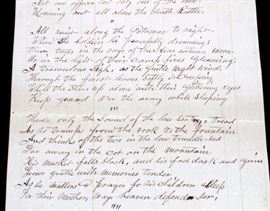 Not an officer lost only one of the men
Moaning out all alone the death Rattle.
"
All quiet along the Potomac to night
Where the Soldiers lie peacefully dreaming
in the light of their fires gleaming
A Tremulous sigh, as the gentle night wind
Through the forest leaves softly is creeping
While the Stars up above with their glittering eyes
Keep guard o'er the army while sleeping
"
There's only the Sound of the lone Sentry's tread
As he tramps from the rock to the fountain
And thinks of the two in the low trundle bed
Far away in the cot on the Mountain
His Musket falls slack, and his face dark and grim
Grows gentle with memories tender
As he mutters a prayer for his children asleep
For their Mother may heaven defend her,
"